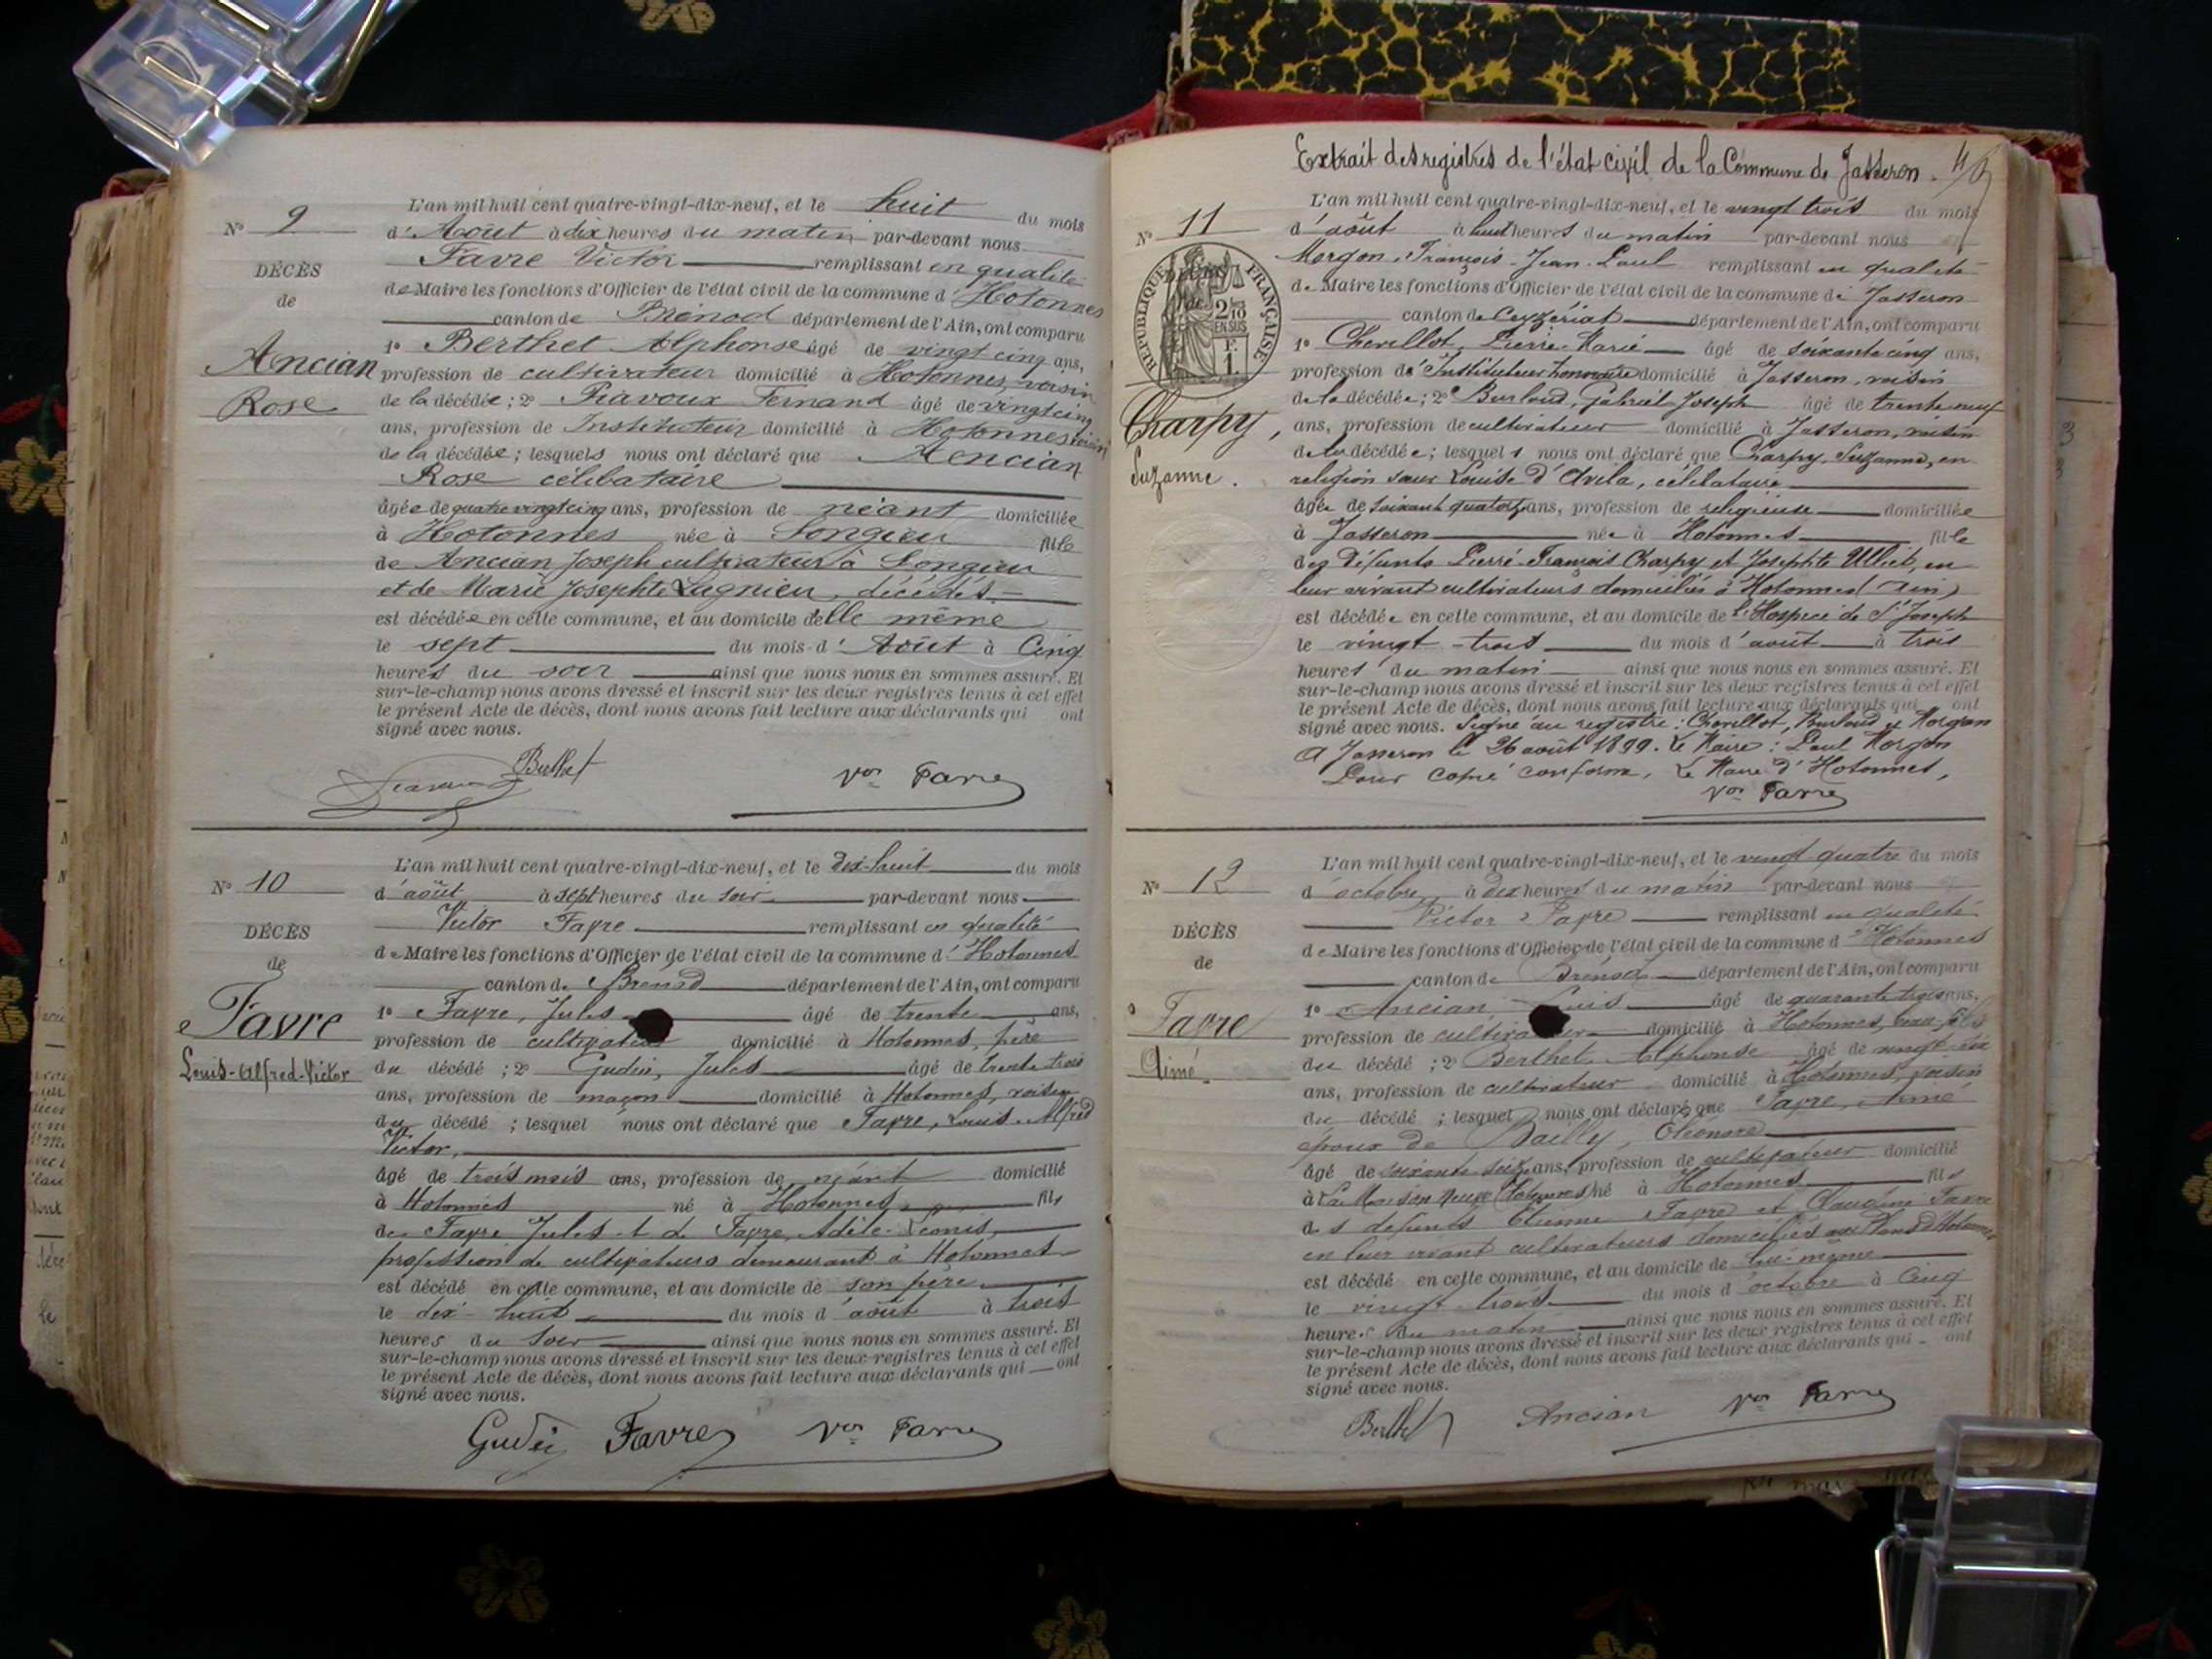 L'an mil huit cent quatre-vingt-dix-neuf, et le huit du mois
N° 9
d'Août à dix heures du matin par-devant nous
Favre Victor remplissant en qualité
DÉCÈS
de Maire les fonctions d'Officier de l'état civil de la commune d'Hotonnes
de
canton de Brénod département de l'Ain, ont comparu
1° Berthet Alphonse âgé de vingt cinq ans,
Ancian
profession de cultivateur domicilié à Hotonnes, voisin
Rose
de la décédée ; 2° Pravoux Fernand âgé de vingt cinq
ans, profession de Instituteur domicilié à Hotonnes voisin
de la décédée ; lesquels nous ont déclaré que Ancian
Rose célibataire
âgée de quatre vingt cinq ans, profession de néant domiciliée
à Hotonnes née à Songieu fille
de Ancian Joseph cultivateur à Songieu
et de Marie Josephte Lagnieu, décédés
est décédée en cette commune, et au domicile d'elle même
le sept du mois d'Août à Cinq
heures du soir ainsi que nous nous en sommes assuré. Et
sur-le-champ nous avons dressé et inscrit sur les deux registres tenus à cet effet
le présent Acte de décès, dont nous avons fait lecture aux déclarants qui ont
signé avec nous.
Berthet
Vor Favre
L'an mil huit cent quatre-vingt-dix-neuf, et le dix-huit du mois
N° 10
d'août à sept heures du soir par-devant nous
Victor Favre remplissant en qualité
DÉCÈS
de Maire les fonctions d'Officier de l'état civil de la commune d'Hotonnes
de
canton de Brénod département de l'Ain, ont comparu
Favre
1° Favre, Jules âgé de trente ans,
profession de cultivateur domicilié à Hotonnes, père
Louis-Alfred-Victor
du décédé ; 2° Gudin, Jules âgé de trente trois
ans, profession de maçon domicilié à Hotonnes, voisin
du décédé ; lesquel nous ont déclaré que Favre, Louis-Alfred
Victor,
âgé de trois mois ans, profession de néant domicilié
à Hotonnes né à Hotonnes, fils
de Favre Jules et de Favre, Adèle
profession de cultivateurs demeurant à Hotonnes
est décédé en cette commune, et au domicile de son père
le dix-huit du mois d'août à trois
heures du soir ainsi que nous nous en sommes assuré. Et
sur-le-champ nous avons dressé et inscrit sur les deux registres tenus à cet effet
le présent Acte de décès, dont nous avons fait lecture aux déclarants qui ont
signé avec nous.
Gudin Favre Vor Favre
Extrait des registres de l'état civil de la Commune de Jasseron.
L'an mil huit cent quatre-vingt-dix-neuf, et le vingt trois du mois
N° 11
d'août à huit heures du matin par-devant nous
Morgon, François-Jean-Paul remplissant en qualité
de Maire les fonctions d'Officier de l'état civil de la commune de Jasseron
RÉPUBLIQUE FRANÇAISE
2/10 EN SUS
F. 1.
canton de Ceyzériat département de l'Ain, ont comparu
1° Chevillot, Pierre-Marie âgé de soixante cinq ans,
profession d'Instituteur honoraire domicilié à Jasseron, voisin
Charpy,
de la décédée ; 2° Burloud, Gabriel Joseph âgé de trente neuf
ans, profession de cultivateur domicilié à Jasseron, voisin
Suzanne.
de la décédée ; lesquels nous ont déclaré que Charpy, Suzanne, en
religion sœur Louise d'Avila, célibataire
âgée de soixante quatorze ans, profession de religieuse domiciliée
à Jasseron née à Hotonnes fille
des défunts Pierre-François Charpy et Josephte Ulliet, en
leur vivant cultivateurs domiciliés à Hotonnes (Ain)
est décédée en cette commune, et au domicile de l'Hospice de St Joseph
le vingt-trois du mois d'août à trois
heures du matin ainsi que nous nous en sommes assuré. Et
sur-le-champ nous avons dressé et inscrit sur les deux registres tenus à cet effet
le présent Acte de décès, dont nous avons fait lecture aux déclarants qui ont
signé avec nous. Signé au registre : Chevillot, Burloud et Morgon
A Jasseron le 26 août 1899. Le Maire : Paul Morgon
Pour copie conforme, Le Maire d'Hotonnes,
Vor Favre
L'an mil huit cent quatre-vingt-dix-neuf, et le vingt quatre du mois
N° 12
d'octobre, à dix heures du matin par-devant nous
Victor Favre remplissant en qualité
DÉCÈS
de Maire les fonctions d'Officier de l'état civil de la commune d'Hotonnes
de
canton de Brénod département de l'Ain, ont comparu
Favre
1° Ancian, Louis âgé de quarante trois ans,
profession de cultivateur domicilié à Hotonnes, beau-fils
Aimé
du décédé ; 2° Berthet Alphonse âgé de vingt six
ans, profession de cultivateur domicilié à Hotonnes, voisin
du décédé ; lesquel nous ont déclaré que Favre, Aimé
époux de Bailly, Eléonore
âgé de soixante seize ans, profession de cultivateur domicilié
à La Maison neuve (Hotonnes) né à Hotonnes fils
des défunts Etienne Favre et Claudine Favre
en leur vivant cultivateurs domiciliés aux Plans d'Hotonnes
est décédé en cette commune, et au domicile de lui-même
le vingt-trois du mois d'octobre à cinq
heures du matin ainsi que nous nous en sommes assuré. Et
sur-le-champ nous avons dressé et inscrit sur les deux registres tenus à cet effet
le présent Acte de décès, dont nous avons fait lecture aux déclarants qui ont
signé avec nous.
Berthet Ancian Vor Favre